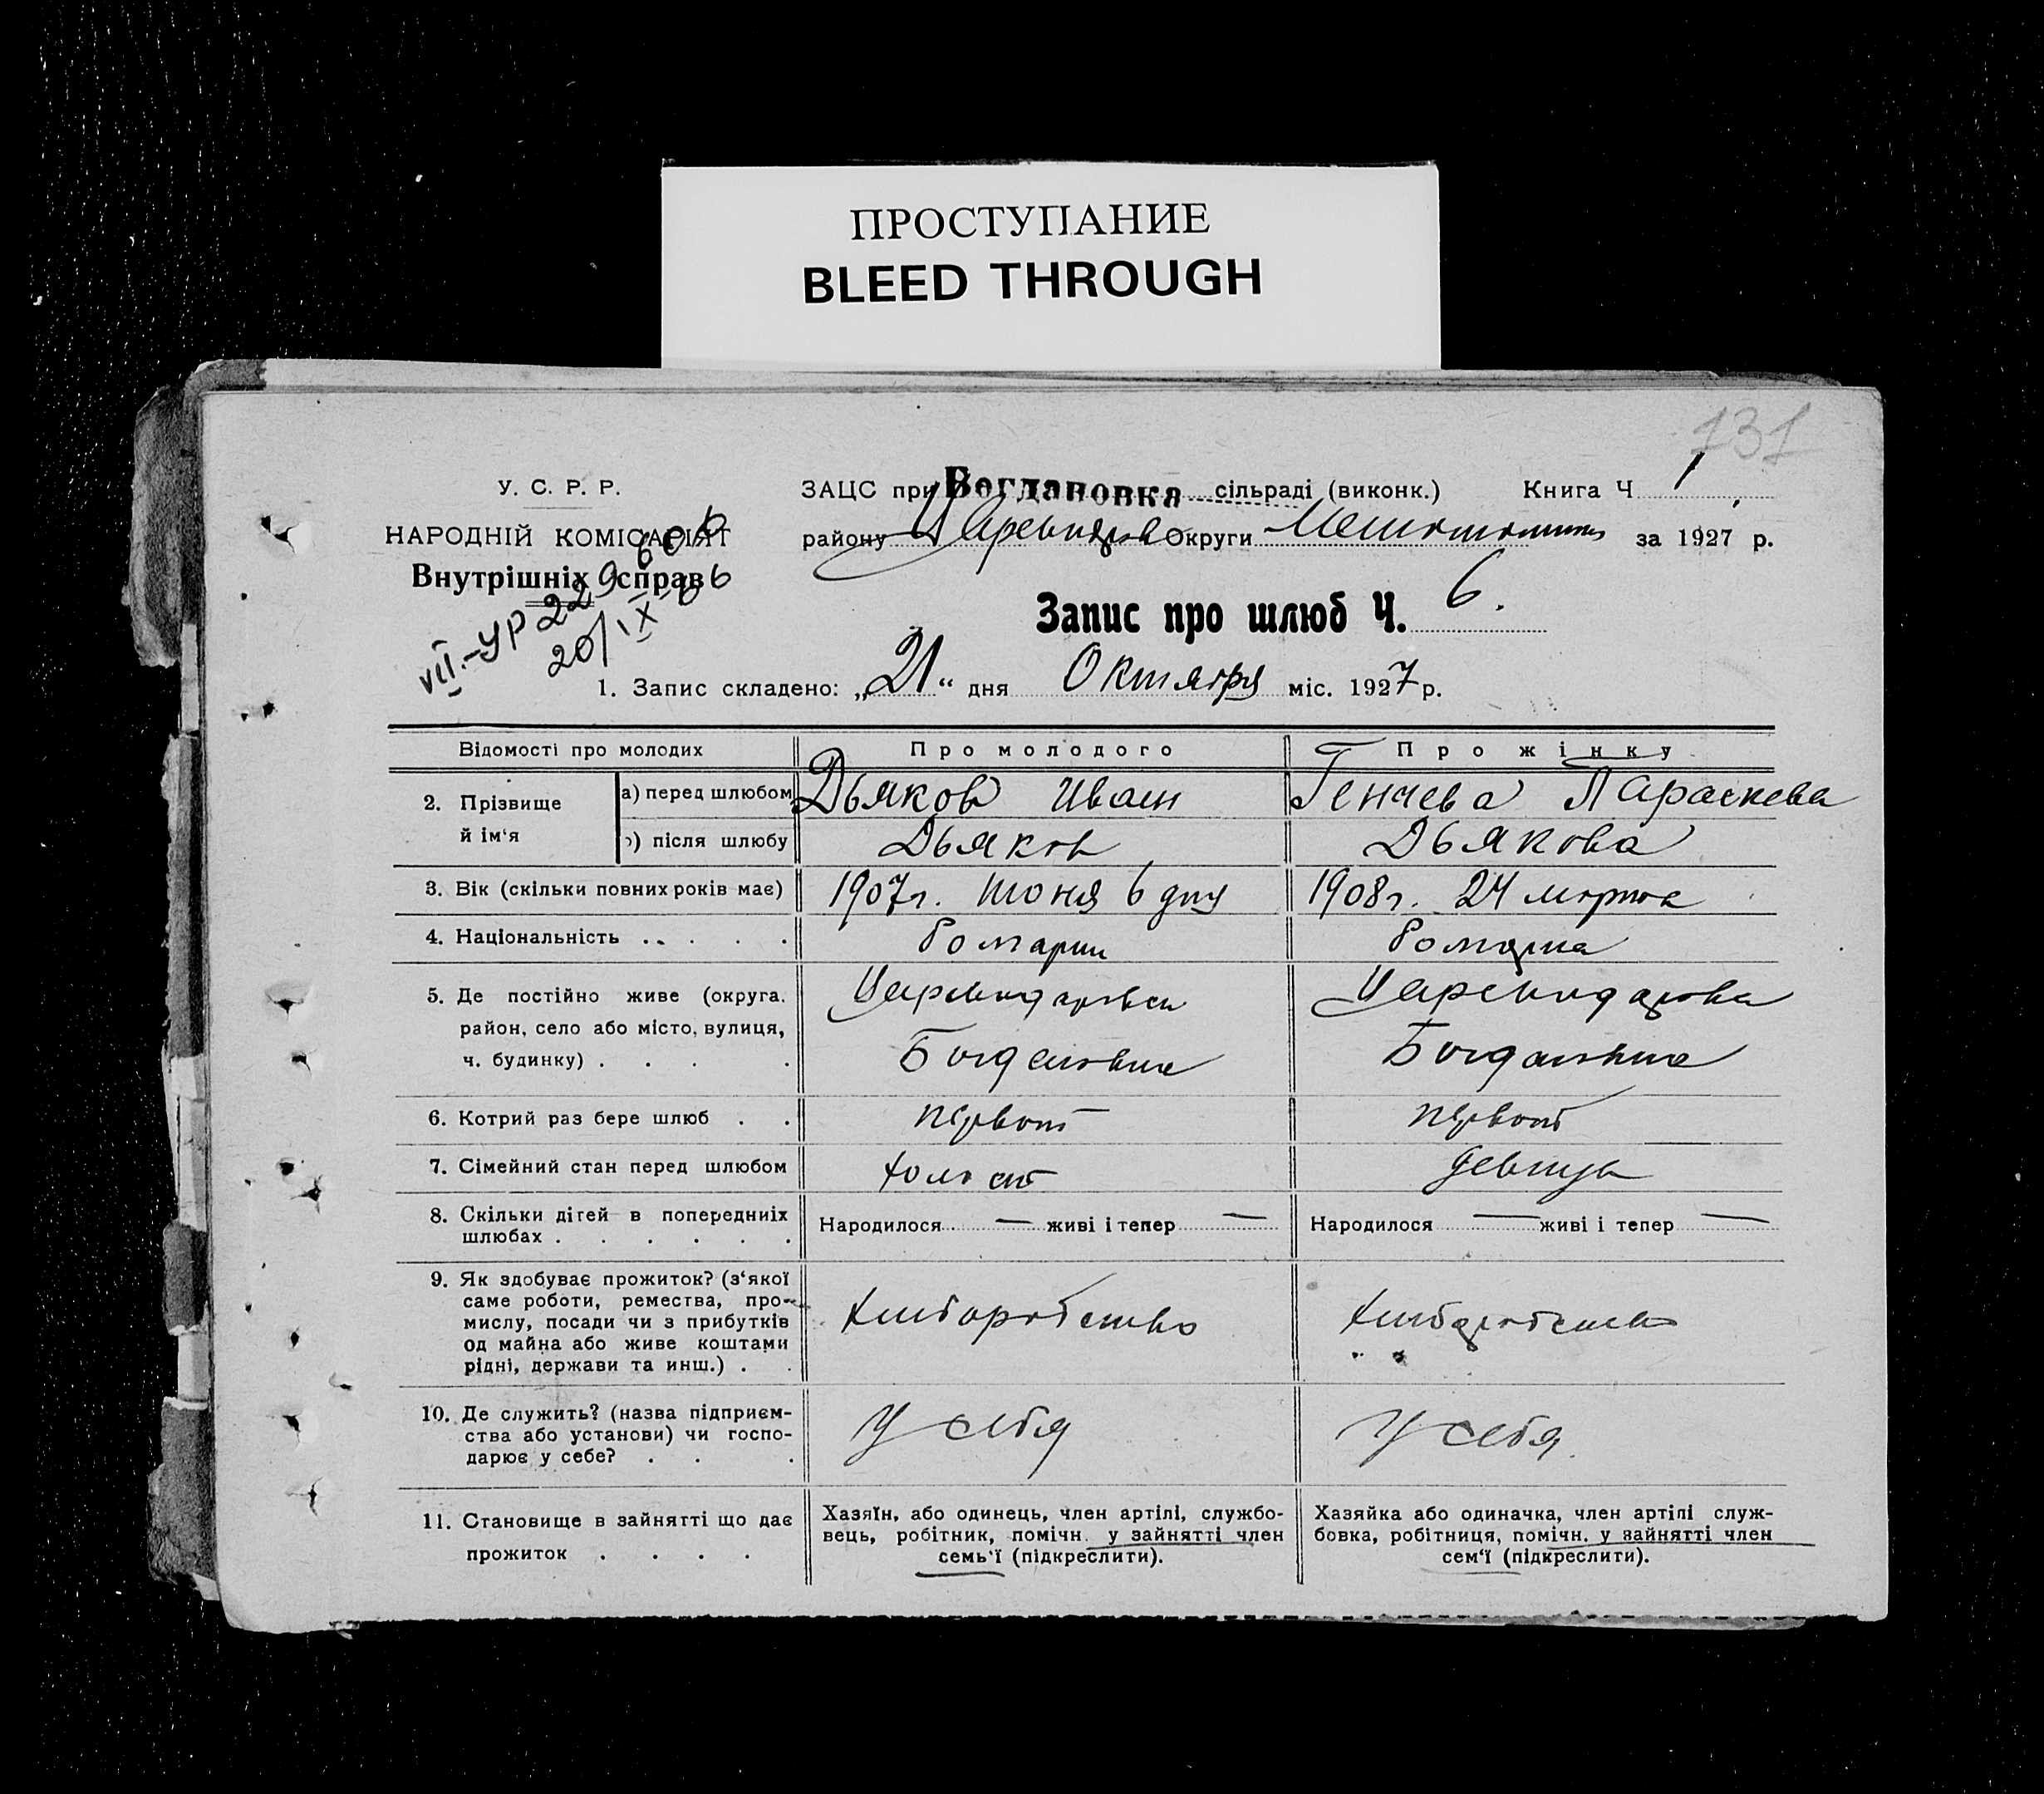 ПРОСТУПАНИЕ
BLEED THROUGH
131
У. С. Р. Р.
НАРОДНІЙ КОМІСАРІЯТ
Внутрішніх справ
20/IX
ЗАЦС при Богдановка сільраді (виконк.) Книга Ч 1
району Округи за 1927 р.
Запис про шлюб Ч. 6.
1. Запис складено: „21“ дня Октября міс. 1927 р.
Відомості про молодих Про молодого Про жінку
2. Прізвище й ім‘я
а) перед шлюбом Дьяков Иван Генчева Параскева
б) після шлюбу Дьяков Дьякова
3. Вік (скільки повних років має) 1907г. Июня 6 дня 1908г. 24 марта
4. Національність . . . . . Болгарин Болгарка
5. Де постійно живе (округа.
район, село або місто, вулиця,
ч. будинку) . . . . Богдановка Богдановка
6. Котрий раз бере шлюб . . первый первый
7. Сімейний стан перед шлюбом холост девица
8. Скільки дітей в попередниіх
шлюбах . . . . . . Народилося — живі і тепер — Народилося — живі і тепер —
9. Як здобуває прожиток? (з‘якої
саме роботи, ремества, про-
мислу, посади чи з прибутків
од майна або живе коштами
рідні, держави та инш.) . . Хлиборобство Хлиборобство
10. Де служить? (назва підприєм-
ства або установи) чи госпо-
дарює у себе? . . . У себя У себя
11. Становище в зайнятті що дає
прожиток . . . .
Хазяїн, або одинець, член артілі, службо-
вець, робітник, помічн. у зайнятті член
семь‘ї (підкреслити).
Хазяйка або одиначка, член артілі служ-
бовка, робітниця, помічн. у зайнятті член
сем‘ї (підкреслити).